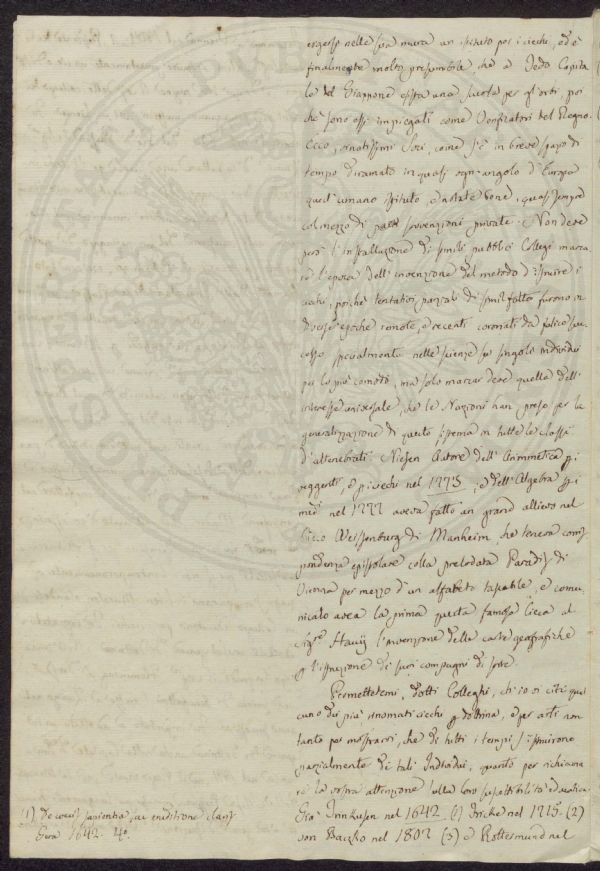 ergersi nelle sua mura un istituto per i ciechi, ed è
finalmente molto presumibile, che a Jedo Capita
le del Giappone esista una scuola per gl'orbi, poi
chè sono essi impiegati come del Regno.
Ecco, ornatissimi Socj, come s'è in breve spazo di
tempo diramato in quasi ogni angolo d'Europa
quest'umano istituto, e quasi sempre
col mezzo di sovvenzioni private. Non deve
però l'installazione di simili pubblici Collegj marca
re l'epoca dell'invenzione del metodo d'istruire i
ciechi, poichè tentativi parziali di simil fatto furono in
diverse epoche remote, e recenti coronati da felice suc
cesso specialmente nelle scienze su singoli individui
per lo più comodi, ma solo marcar deve quella dell'
interesse universale, che le Nazioni han preso per la
generalizzazione di questo sistema in tutte le classi
d'attenebrati. Niesen Autore dell'Arimmetica pi
veggenti, e pi ciechi nel 1773, e dell'Algebra pi
nel 1777 aveva fatto un grand allievo nel
Cieco Weissenburg di Manheim, che teneva corris
pondenza epistolare colla prelodata Paradis di
Vienna per mezzo d'un alfabeto tastabile, e comu
nicato avea la prima questa famosa cieca al
Sigre Haüy l'invenzione delle carte geografiche
p l'istruzione di suoi compagni di
Permettetemi, dotti Colleghi, ch'io vi citi qual
cuno dei più rinomati ciechi p dottrina, e per arti non
tanto per mostrarvi, che di tutti i tempi s'istruirono
parzialmente di tali Individui, quanto per richiama
re la vostra attenzione sulla loro suscettibilità educativa.
Già nel 1642. (1) Fricke nel 1715. (2)
von Baczko nel 1807 (3) e Rottermund nel
(1) De coecis sapientia, ac eruditione claris
Gera 1642. 4o.